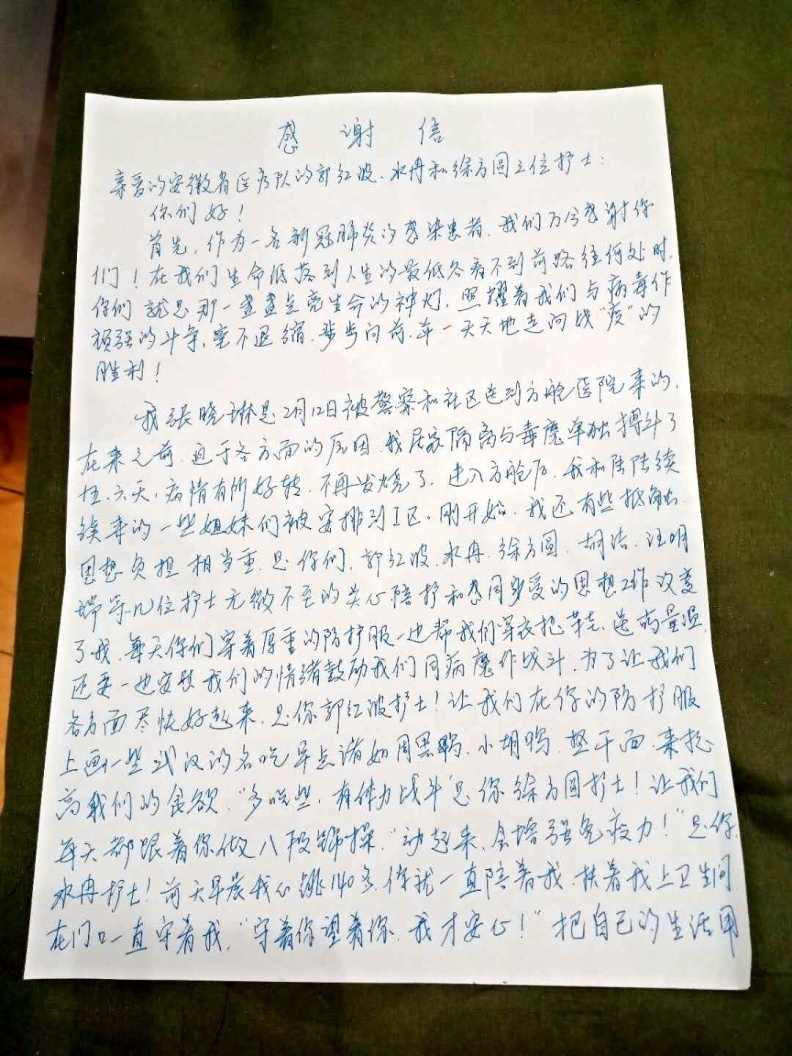 感谢信
亲爱的安徽省医疗队的郭红波、水冉和徐方圆三位护士：
你们好！
首先，作为一名新冠肺炎的感染患者，我们万分感谢你
们！在我们生命低落到人生的最低谷看不到前路往何处时，
你们就是那一盏盏点亮生命的神灯，照耀着我们与病毒作
顽强的斗争，毫不退缩，步步向前，在一天天地走向战“疫”的
胜利！
我张晓琳是2月12日被警察和社区送到方舱医院来的，
在来之前，迫于各方面的原因，我居家隔离与毒魔单独搏斗了
五、六天，病情有所好转，不再发烧了，进入方舱后，我和陆陆续
续来的一些姐妹们被安排到I区，刚开始，我还有些抵触，
思想负担相当重，是你们，郭红波、水冉、徐方圆、胡洁、汪明
端等几位护士无微不至的关心陪护和感同身受的思想工作改变
了我，每天你们穿着厚重的防护服一边帮我们穿衣，送药量温，
还要一边安慰我们的情绪鼓励我们同病魔作战斗，为了让我们
各方面尽快好起来，是你郭红波护士！让我们在你的防护服
上画一些武汉的名吃早点诸如周黑鸭、小胡鸭、热干面，来提
高我们的食欲，“多吃些，有体力战斗”是你徐方圆护士！让我们
每天都跟着你做八段锦操，“动起来，会增强免疫力！”是你，
水冉护士！前天早晨我心跳140多，你就一直陪着我，扶着我上卫生间
在门口一直守着我，“守着你望着你，我才安心！”把自己的生活用